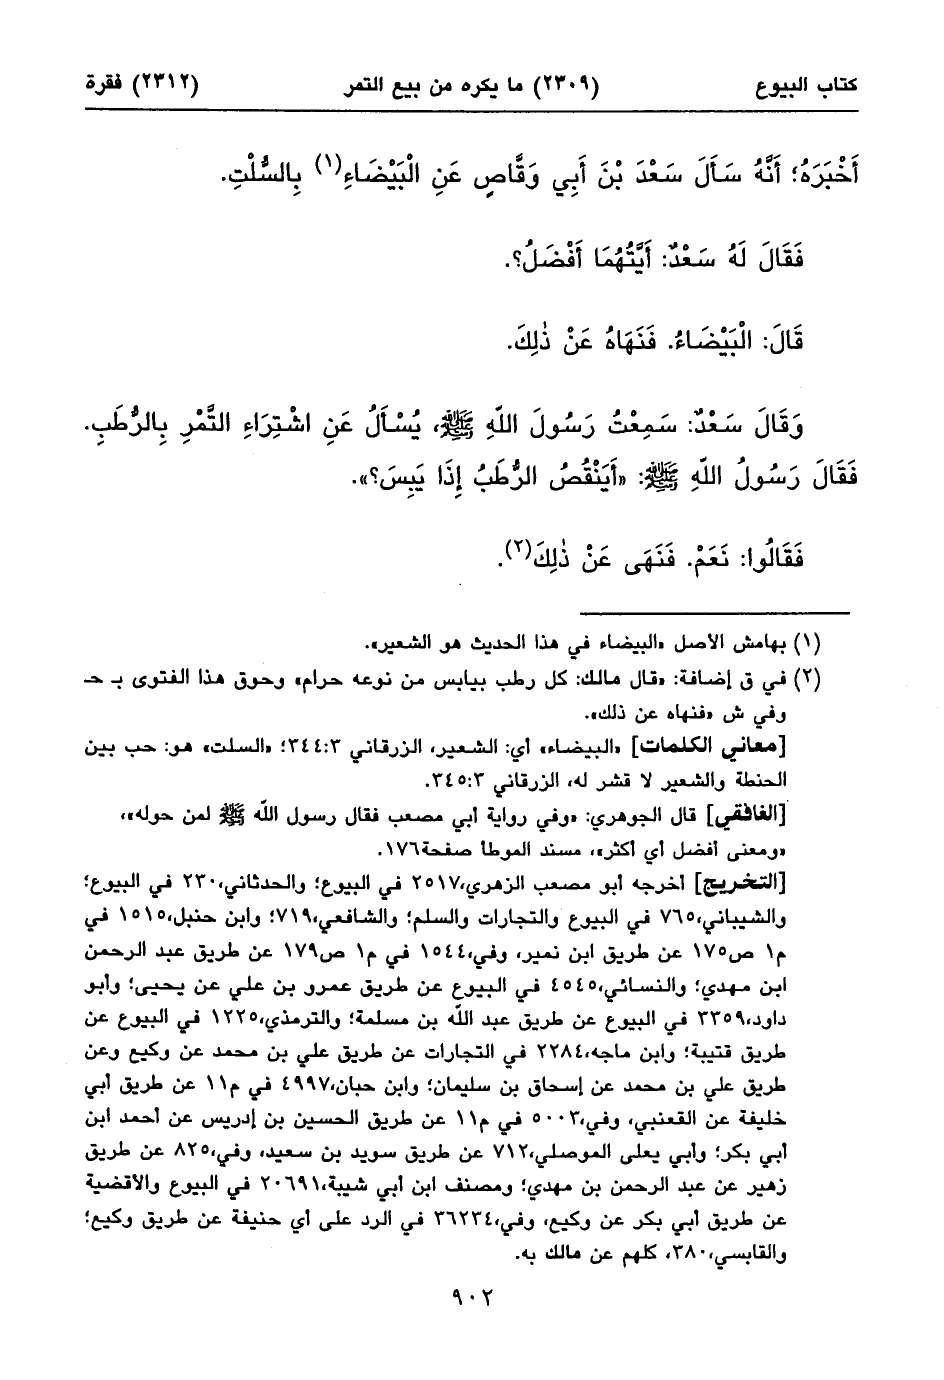 كتاب البيوع (٢٣٠٩) ما يكره من بيع التمر (٢٣١٢) فقرة
أَخْبَرَهُ؛ أَنَّهُ سَأَلَ سَعْدَ بْنَ أَبِي وَقَّاصٍ عَنِ الْبَيْضَاءِ(١) بِالسُّلْتِ.
فَقَالَ لَهُ سَعْدٌ: أَيَّتُهُمَا أَفْضَلُ؟.
قَالَ: الْبَيْضَاءُ. فَنَهَاهُ عَنْ ذٰلِكَ.
وَقَالَ سَعْدٌ: سَمِعْتُ رَسُولَ اللّهِ ﷺ، يُسْأَلُ عَنِ اشْتِرَاءِ التَّمْرِ بِالرُّطَبِ.
فَقَالَ رَسُولُ اللّهِ ﷺ: «أَيَنْقُصُ الرُّطَبُ إِذَا يَبِسَ؟».
فَقَالُوا: نَعَمْ. فَنَهَى عَنْ ذٰلِكَ(٢).
(١) بهامش الأصل «البيضاء في هذا الحديث هو الشعير».
(٢) في ق إضافة: «قال مالك: كل رطب بيابس من نوعه حرام» وحوق هذا الفتوى بـ حـ
وفي ش «فنهاه عن ذلك».
[معاني الكلمات] «البيضاء» أي: الشعير، الزرقاني ٣٤٤:٣؛ «السلت» هو: حب بين
الحنطة والشعير لا قشر له، الزرقاني ٣٤٥:٣.
[الغافقي] قال الجوهري: «وفي رواية أبي مصعب فقال رسول الله ﷺ لمن حوله»،
«ومعنى أفضل أي أكثر»، مسند الموطأ صفحة١٧٦.
[التخريج] أخرجه أبو مصعب الزهري،٢٥١٧ في البيوع؛ والحدثاني،٢٣٠ في البيوع؛
والشيباني،٧٦٥ في البيوع والتجارات والسلم؛ والشافعي،٧١٩؛ وابن حنبل،١٥١٥ في
م١ ص١٧٥ عن طريق ابن نمير، وفي،١٥٤٤ في م١ ص١٧٩ عن طريق عبد الرحمن
ابن مهدي؛ والنسائي،٤٥٤٥ في البيوع عن طريق عمرو بن علي عن يحيى؛ وأبو
داود،٣٣٥٩ في البيوع عن طريق عبد الله بن مسلمة؛ والترمذي،١٢٢٥ في البيوع عن
طريق قتيبة؛ وابن ماجه،٢٢٨٤ في التجارات عن طريق علي بن محمد عن وكيع وعن
طريق علي بن محمد عن إسحاق بن سليمان؛ وابن حبان،٤٩٩٧ في م١١ عن طريق أبي
خليفة عن القعنبي، وفي،٥٠٠٣ في م١١ عن طريق الحسين بن إدريس عن أحمد ابن
أبي بكر؛ وأبي يعلى الموصلي،٧١٢ عن طريق سويد بن سعيد، وفي،٨٢٥ عن طريق
زهير عن عبد الرحمن بن مهدي؛ ومصنف ابن أبي شيبة،٢٠٦٩١ في البيوع والأقضية
عن طريق أبي بكر عن وكيع، وفي،٣٦٢٣٤ في الرد على أي حنيفة عن طريق وكيع؛
والقابسي،٣٨٠، كلهم عن مالك به.
٩٠٢